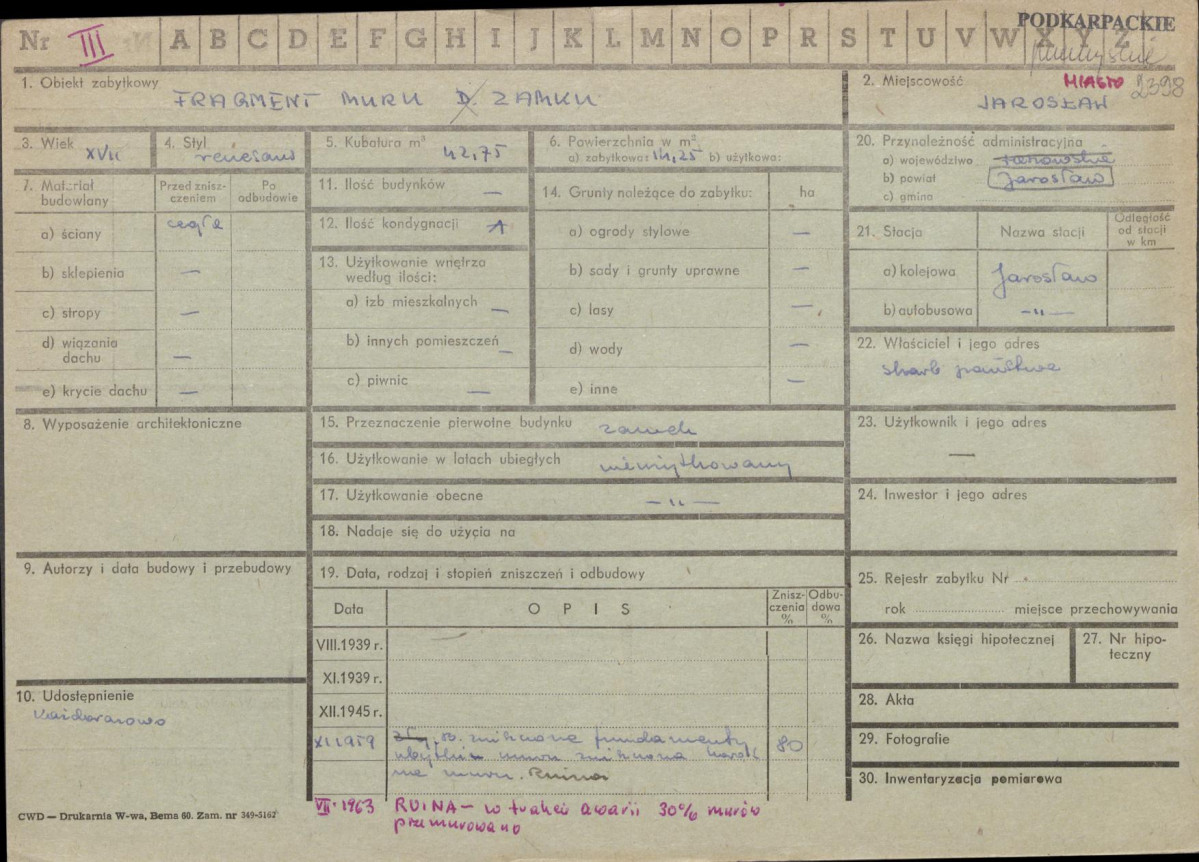 PODKARPACKIE
Nr III A B C D E F G H I J K L M N O P R S T U V W X Y Z
przemyskie
1. Obiekt zabytkowy
FRAGMENT MURU D. ZAMKU
2. Miejscowość MIASTO 2398
JAROSŁAW
3. Wiek XVII
4. Styl renesans
5. Kubatura m³ 42,75
6. Powierzchnia w m²
a) zabytkowa: 14,25 b) użytkowa:
20. Przynależność administracyjna
a) województwo rzeszowskie
b) powiat Jarosław
c) gmina
7. Materiał budowlany
Przed zniszczeniem
Po odbudowie
a) ściany cegła
b) sklepienia —
c) stropy —
d) wiązania dachu —
e) krycie dachu —
11. Ilość budynków —
12. Ilość kondygnacji 1
13. Użytkowanie wnętrza
według ilości:
a) izb mieszkalnych —
b) innych pomieszczeń —
c) piwnic —
14. Grunty należące do zabytku: ha
a) ogrody stylowe —
b) sady i grunty uprawne —
c) lasy —
d) wody —
e) inne —
21. Stacja
Nazwa stacji
Odległość
od stacji
w km
a) kolejowa Jarosław
b) autobusowa —"—
22. Właściciel i jego adres
skarb państwa
8. Wyposażenie architektoniczne
15. Przeznaczenie pierwotne budynku zamek
16. Użytkowanie w latach ubiegłych nieużytkowany
17. Użytkowanie obecne —"—
18. Nadaje się do użycia na
23. Użytkownik i jego adres
—
24. Inwestor i jego adres
9. Autorzy i data budowy i przebudowy
19. Data, rodzaj i stopień zniszczeń i odbudowy
Data
OPIS
Zniszczenia %
Odbudowa %
VIII.1939 r.
XI.1939 r.
XII.1945 r.
XI 1959 zniszczone fundamenty 80
ubytki muru zniszczona
muru. Ruina
VII. 1963 RUINA — w trakcie awarii 30% murów
przemurowano
25. Rejestr zabytku Nr
rok miejsce przechowywania
26. Nazwa księgi hipotecznej
27. Nr hipoteczny
28. Akta
29. Fotografie
30. Inwentaryzacja pomiarowa
10. Udostępnienie
CWD — Drukarnia W-wa, Bema 60. Zam. nr 349-5162